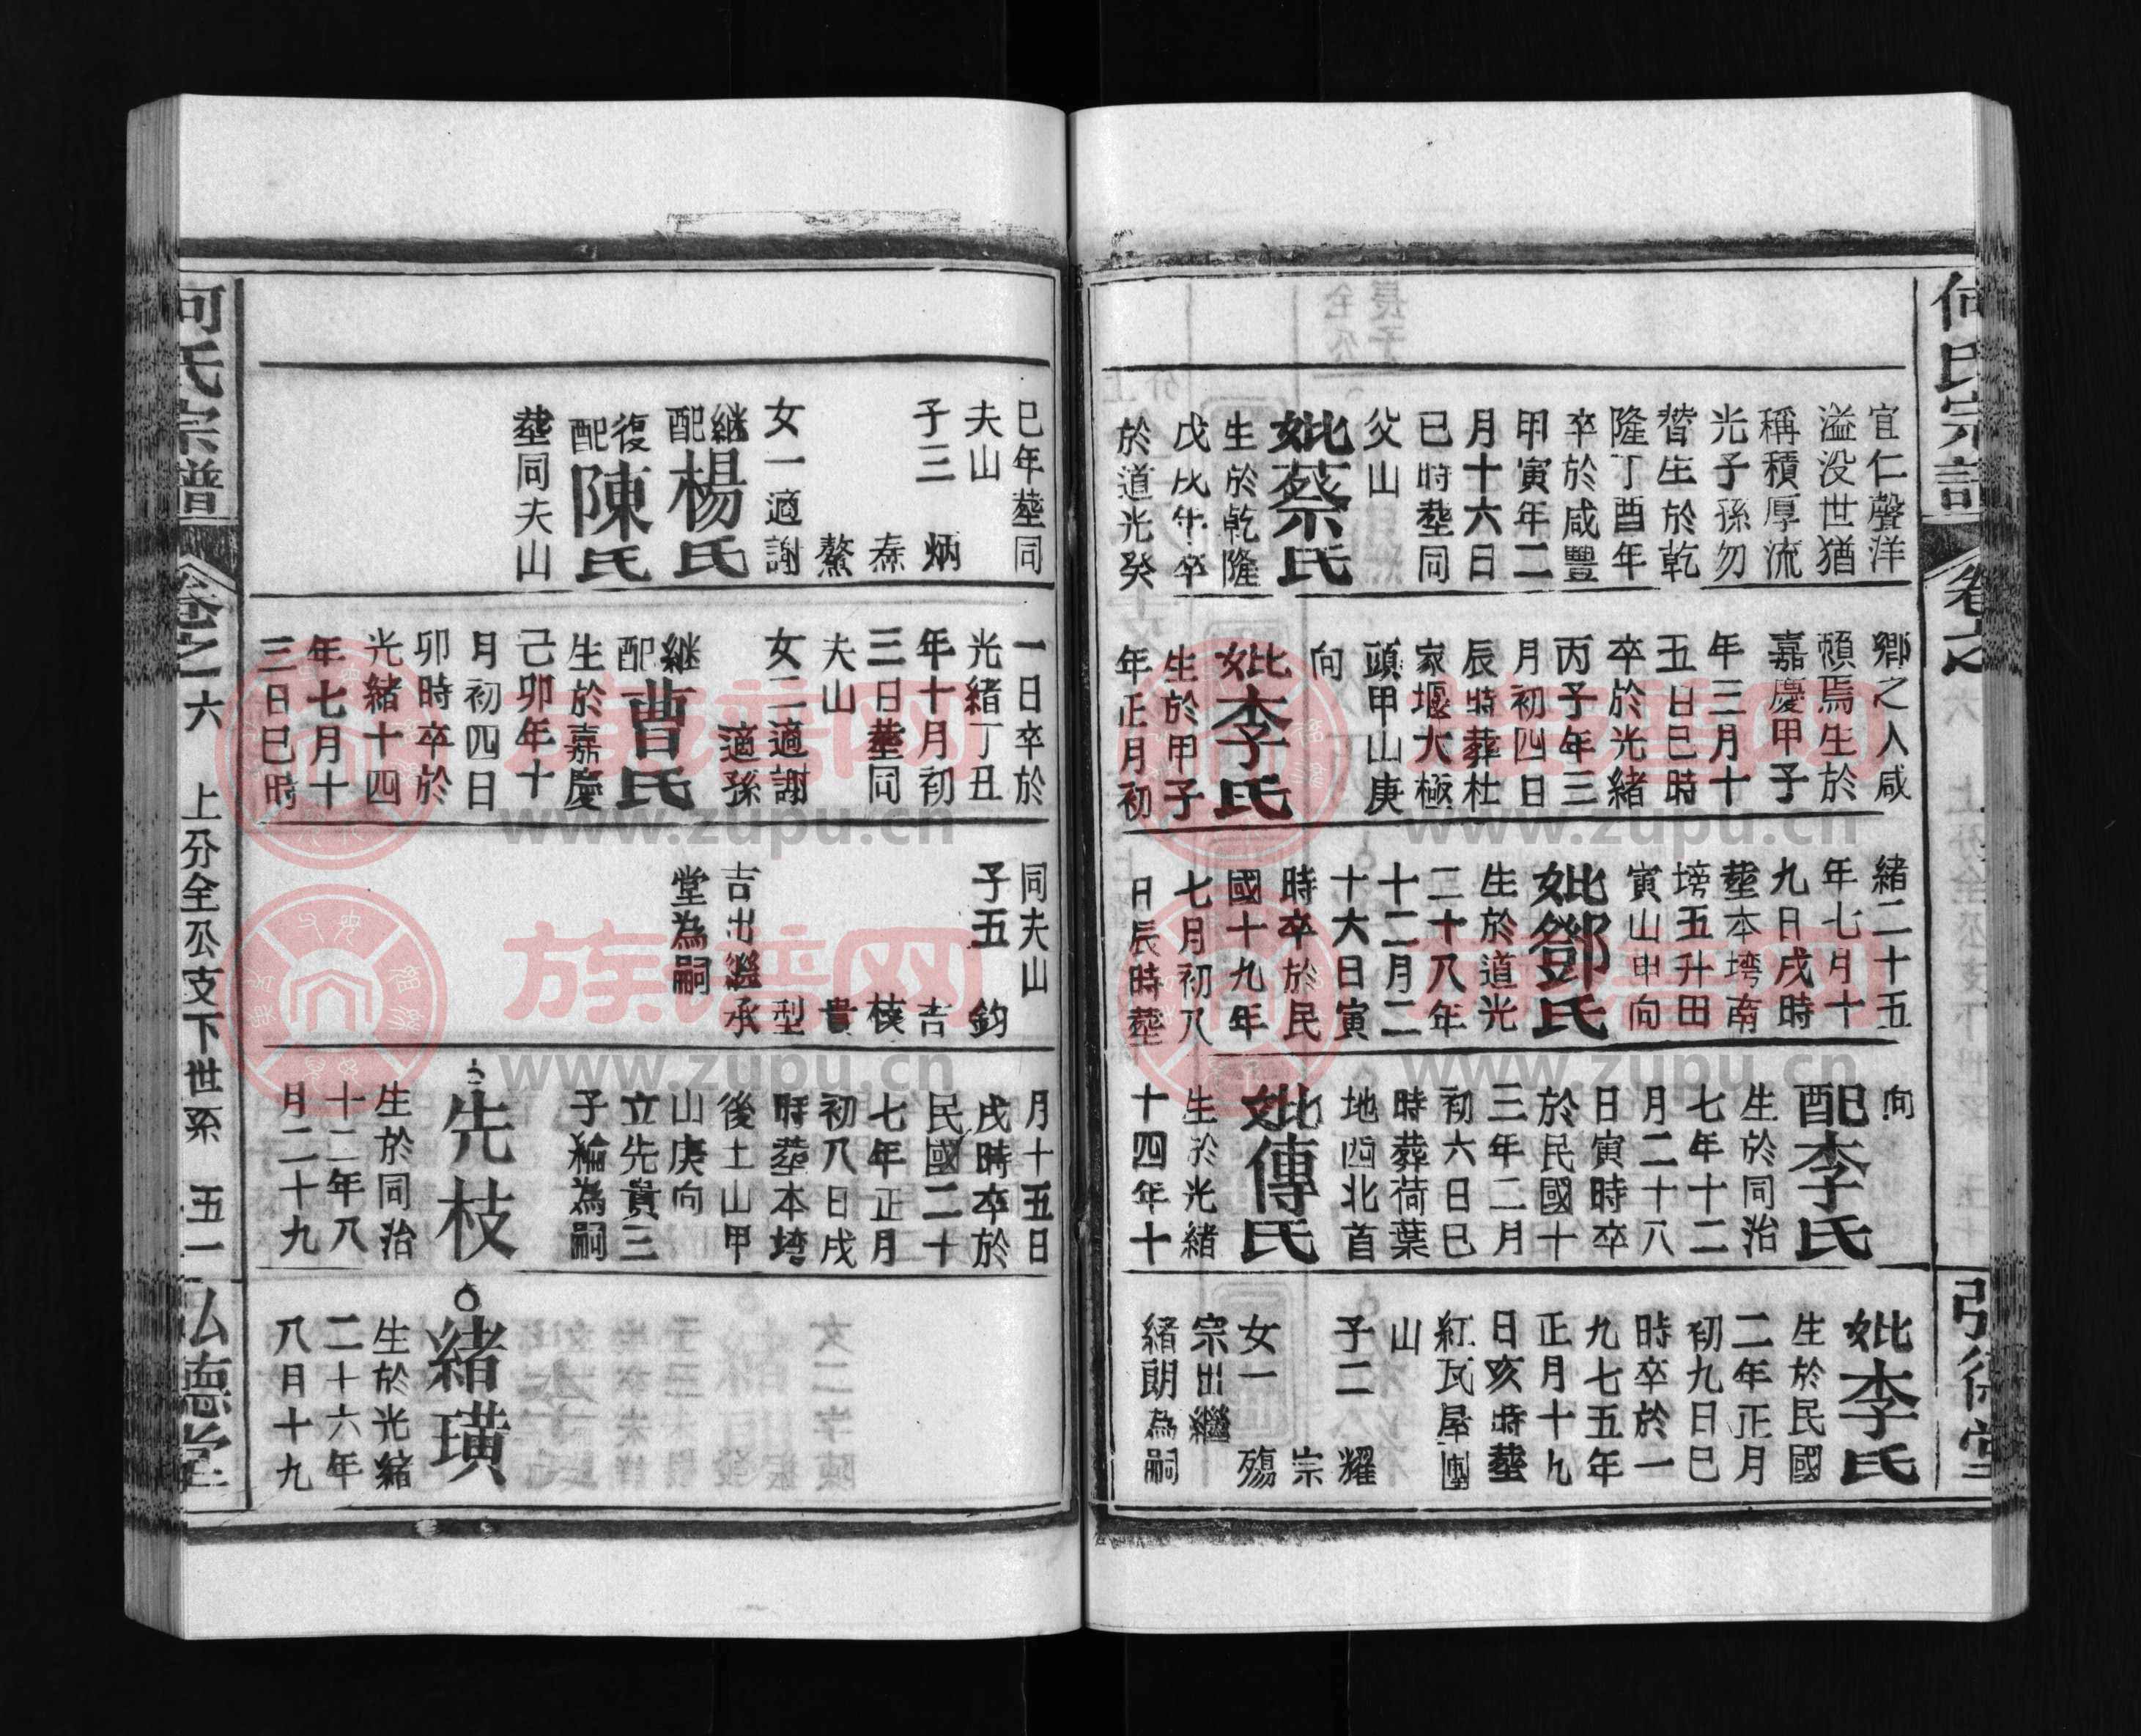 何氏宗譜
卷之
弘德堂
宜仁聲洋
溢没世猶
稱積厚流
光子孫勿
替生於乾
隆丁酉年
卒於咸豐
甲寅年二
月十六日
巳時塟同
父山
妣蔡氏
生於乾隆
戊戊午卒
於道光癸
鄉之人咸
頼焉生於
嘉慶甲子
年三月十
五日巳時
卒於光緒
丙子年三
月初四日
辰時葬杜
家堰大極
頭甲山庚
向
妣李氏
生於甲子
年正月初
緒二十五
年七月十
九日戌時
塟本塆南
塝五升田
寅山申向
妣鄧氏
生於道光
二十八年
十二月二
十六日寅
時卒於民
國十九年
七月初八
日辰時塟
向
配李氏
生於同治
七年十二
月二十八
日寅時卒
於民國十
三年二月
初六日巳
時葬荷葉
地西北首
妣傳氏
生於光緒
十四年十
妣李氏
生於民國
二年正月
初九日巳
時卒於一
九七五年
正月十九
日亥時塟
紅瓦屋團
山
子二 耀
宗
女一 殤
宗出繼
緒朗為嗣
巳年塟同
夫山
子三 炳
泰
鰲
女一適謝
継配楊氏
復配陳氏
塟同夫山
一日卒於
光緒丁丑
年十月初
三日塟同
夫山
女二適謝
適孫
継配曹氏
生於嘉慶
己卯年十
月初四日
卯時卒於
光緒十四
年七月十
三日巳時
同夫山
子五 鈞
吉
枝
貴
型
吉出繼承
堂為嗣
月十五日
戌時卒於
民國二十
七年正月
初八日戌
時塟本塆
後土山甲
山庚向
立先貴三
子綸為嗣
先枝
生於同治
十二年八
月二十九
緒璜
生於光緒
二十六年
八月十九
何氏宗譜
卷之六
上分全公支下世系
五一
弘德堂
族谱网
www.zupu.cn
族谱网
www.zupu.cn
族谱网
www.zupu.cn
族谱网
www.zupu.cn